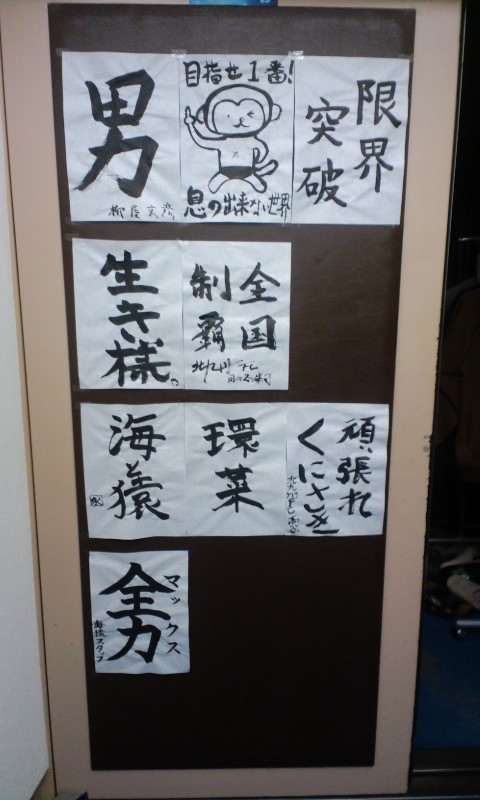 男
目指せ1番!
ス
息の出来ない世界
限界
突破
生き様。
全国
制覇
海と猿
環菜
頑張れ
くにさき
マックス
全力
海猿スタッフ